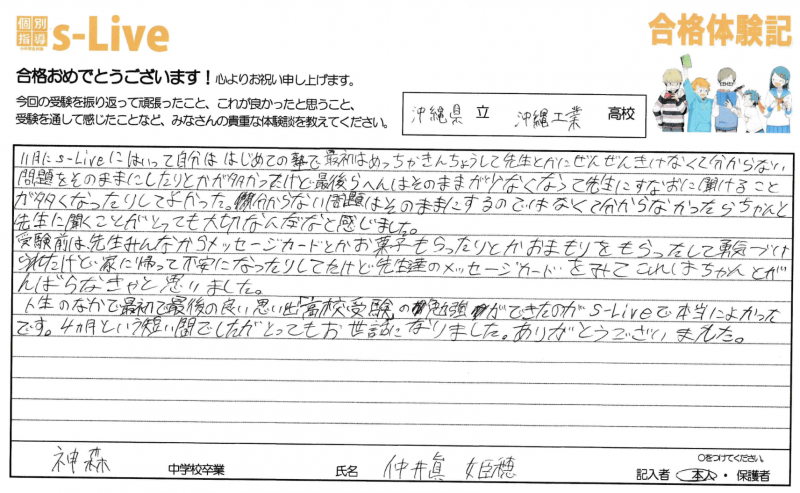 個別指導 s-Live
合格体験記
合格おめでとうございます！心よりお祝い申し上げます。
今回の受験を振り返って頑張ったこと、これが良かったと思うこと、
受験を通して感じたことなど、みなさんの貴重な体験談を教えてください。
沖縄県 立 沖縄工業 高校
11月にs-Liveにはいって自分ははじめての塾で最初はめっちゃきんちょうして先生とかにぜんぜんきけなくて分からない
問題をそのままにしたりとかが多かったけど最後らへんはそのままが少なくなって先生にすなおに聞けること
が多くなったりしてよかった。分からない問題はそのままにするのではなくて分からなかったらちゃんと
先生に聞くことがとっても大切なんだなと感じました。
受験前は先生みんなからメッセージカードとかお菓子もらったりとかおまもりをもらったして勇気づけ
られたけど家に帰って不安になったりしてたけど先生達のメッセージカードをみてこれはちゃんとが
んばらなきゃと思いました。
人生のなかで最初で最後の良い思い出「高校受験」の勉強ができたのがs-Liveで本当によかった
です。4ヵ月という短い間でしたがとってもお世話になりました。ありがとうございました。
神森 中学校卒業 氏名 仲井眞 姫穂
○をつけてください。
記入者 本人・保護者